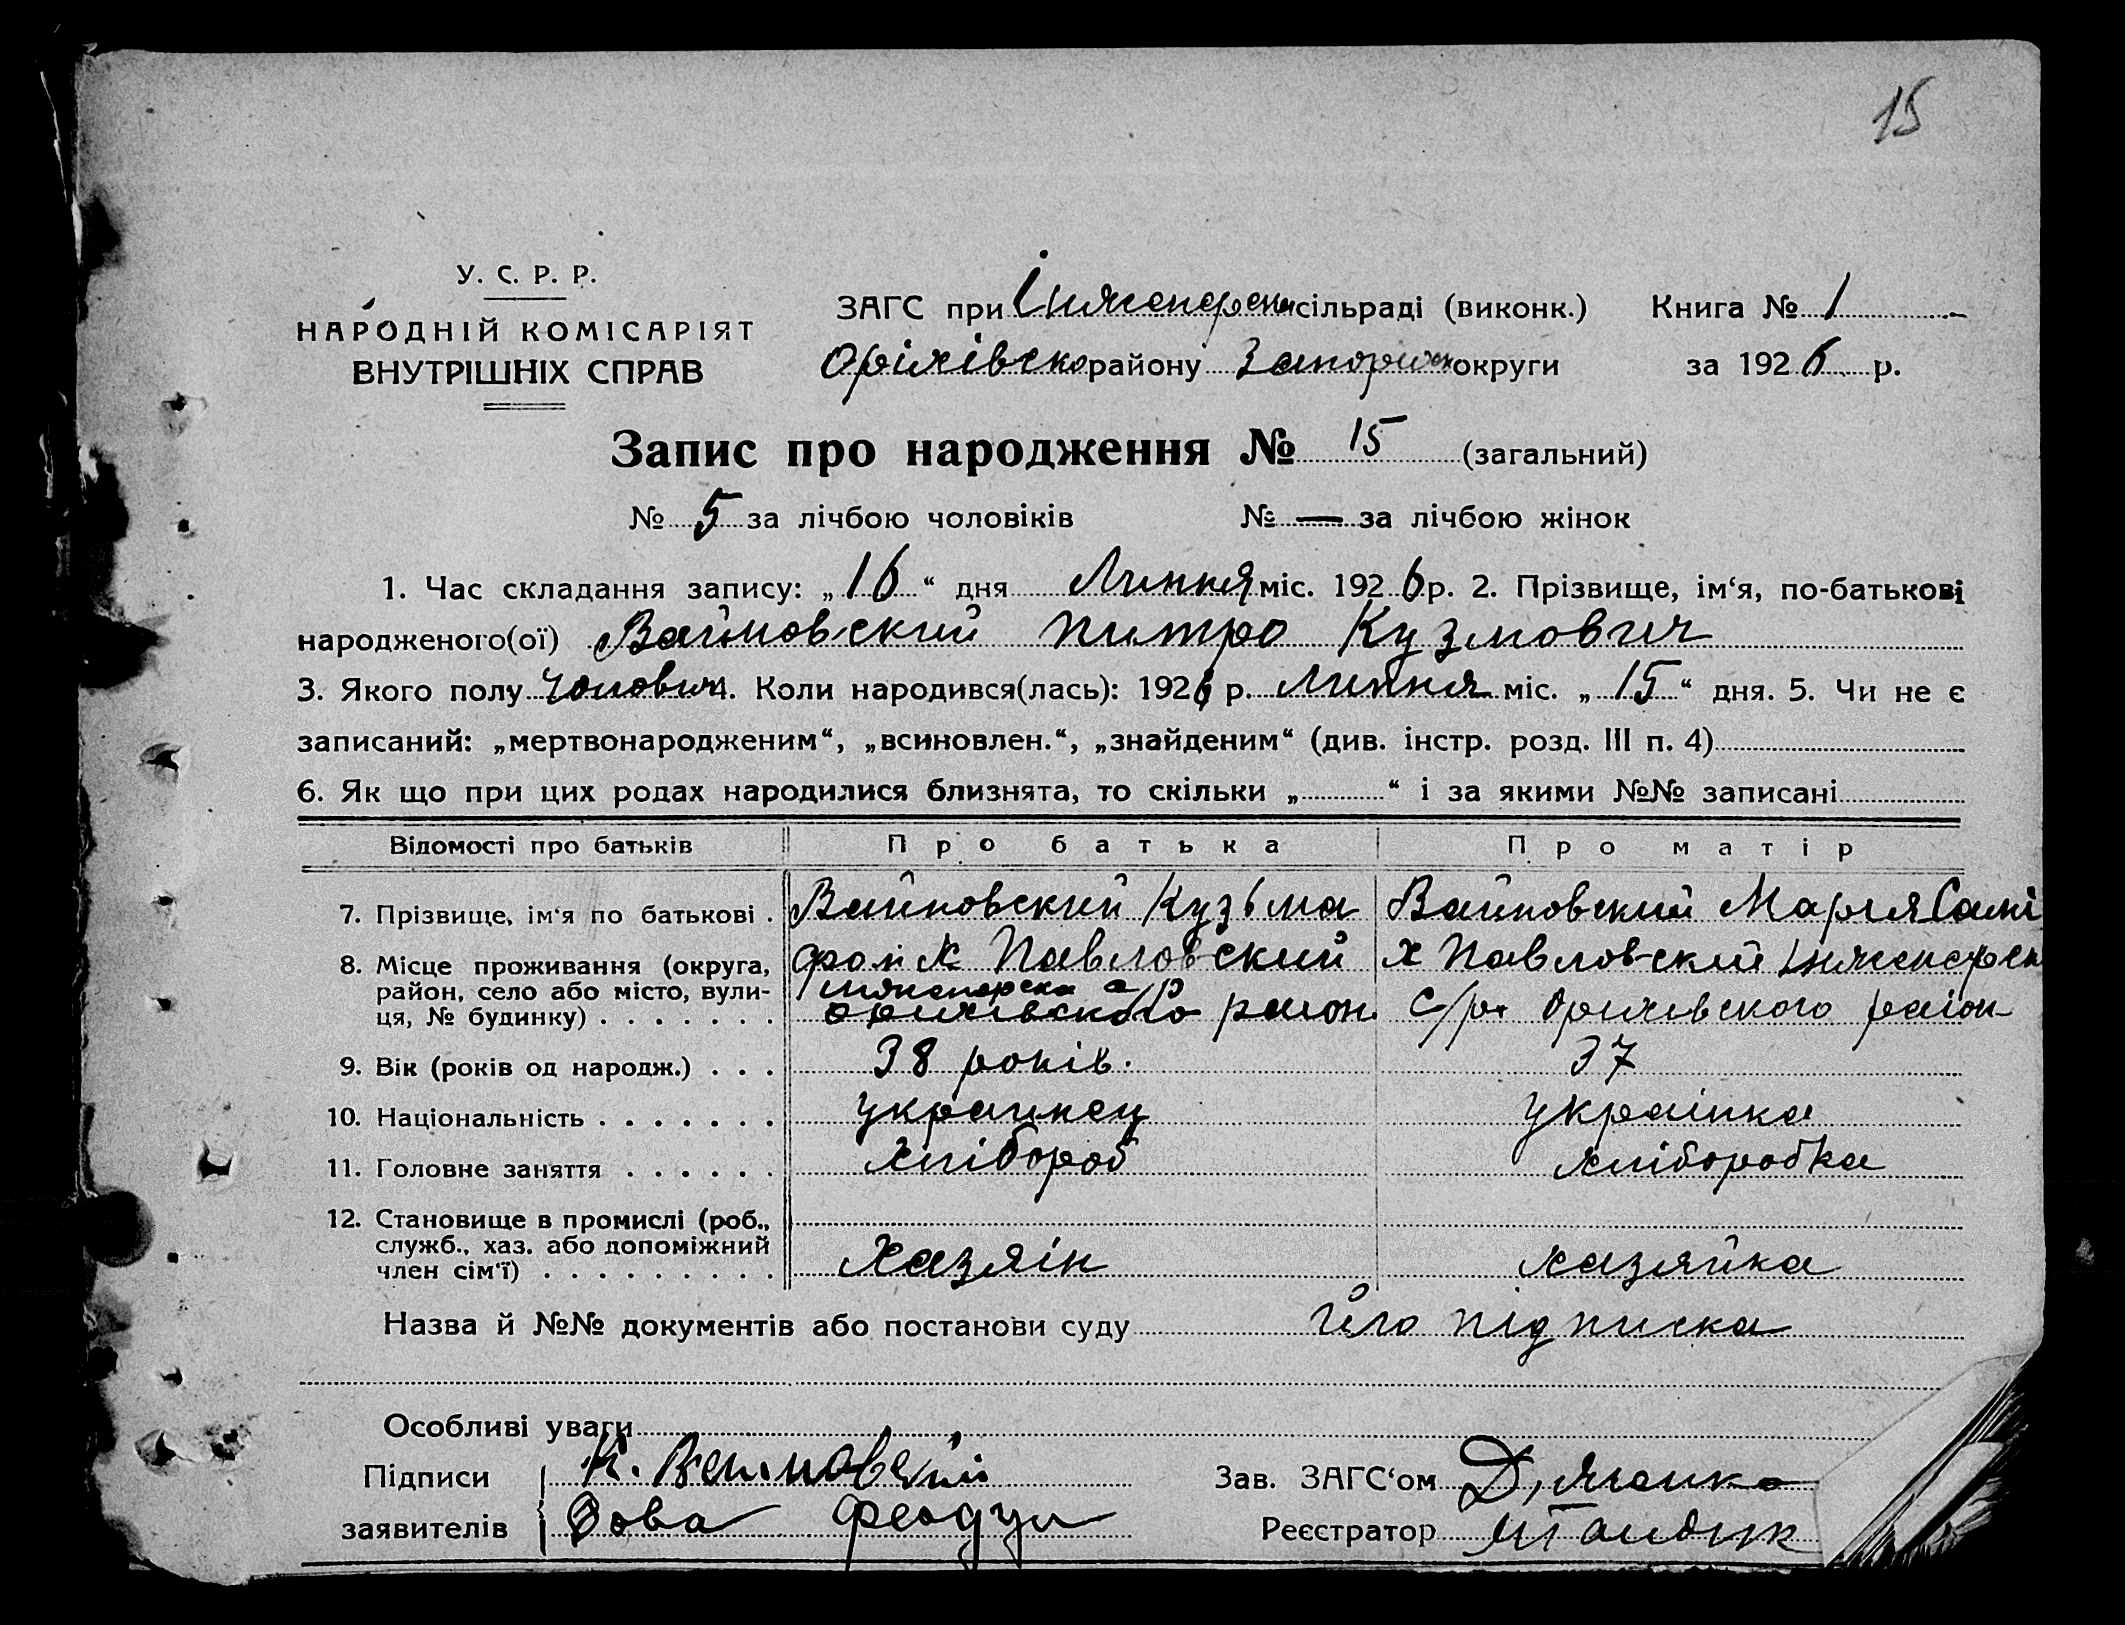 15
У. С. Р. Р.
НАРОДНІЙ КОМІСАРІЯТ
ВНУТРІШНІХ СПРАВ
ЗАГС при Інженерен сільраді (виконк.) Книга № 1
Оріхівско району Запоріжж округи за 1926 р.
Запис про народження № 15 (загальний)
№ 5 за лічбою чоловіків № — за лічбою жінок
1. Час складання запису: „16“ дня Липня міс. 1926 р. 2. Прізвище, ім‘я, по-батькові
народженого(ої) Вайновский Питро Кузмович
3. Якого полу Чолович 4. Коли народився(лась): 1926 р. Липня міс. „15“ дня. 5. Чи не є
записаний: „мертвонародженим“, „всиновлен.“, „знайденим“ (див. інстр. розд. III п. 4)
6. Як що при цих родах народилися близнята, то скільки „ “ і за якими №№ записані
Відомості про батьків Про батька Про матір
7. Прізвище, ім‘я по батькові . Вайновский Кузьма Вайновский Мария
8. Місце проживання (округа, х Павловский х Павловский
район, село або місто, вули-
ця, № будинку) . . . . . . . Орихівского район с/р Орихівского район
9. Вік (років од народж.) . . . 38 років. 37
10. Національність . . . . . . . украинец украінка
11. Головне заняття . . . . . . хлібороб хліборобка
12. Становище в промислі (роб.,
служб., хаз. або допоміжний
член сім‘ї) . . . . . . . . . Хазяін хазяйка
Назва й №№ документів або постанови суду Його підписка
Особливі уваги
Підписи К. Вайновский Зав. ЗАГС‘ом
заявителів Зова Феодул Реєстратор